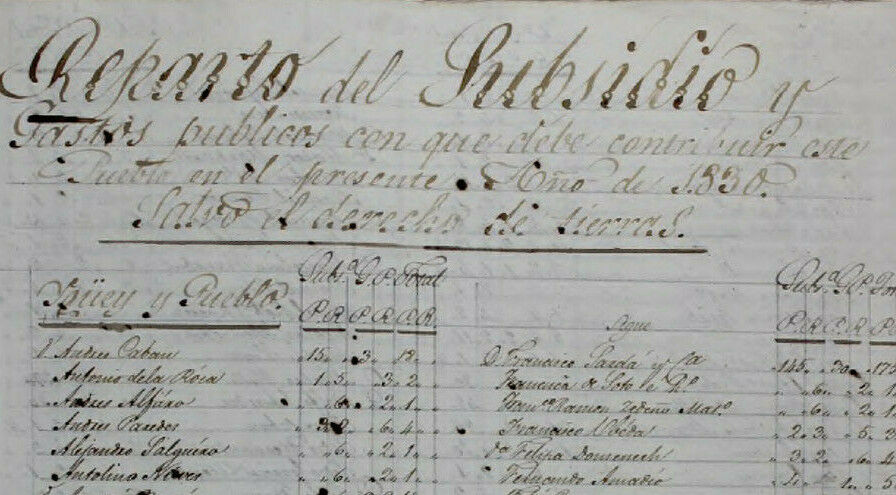 Reparto del Subsidio y
Gastos publicos con que debe contribuir este
Pueblo en el presente Año de 1830.
Salvo el derecho de tierras.
Subs.º G.P. Total
P. R. P. R. P. R.
Ysüey y Pueblo.
Andres Paban 15 3 18
Antonio de la Rósa 1 5 3 2
Andres Alfáro 6 2 1
Andres Paredes 3 2 6 4
Alejandro Salguéro 6 2 1
Antolino Nieves 6 2 1
Subs.º G.P.
P. R. P. R. P.
Sigue
D. Francisco Pardá y Cª 145 30 175
Francisca de Soto 6 2 1
Franco Ramon Zedeno Mat.º 6 2
Francisco Ubeda 2 3 5 3
Dª Felipa Domenech 3 2 6 4
Fernando Amadio